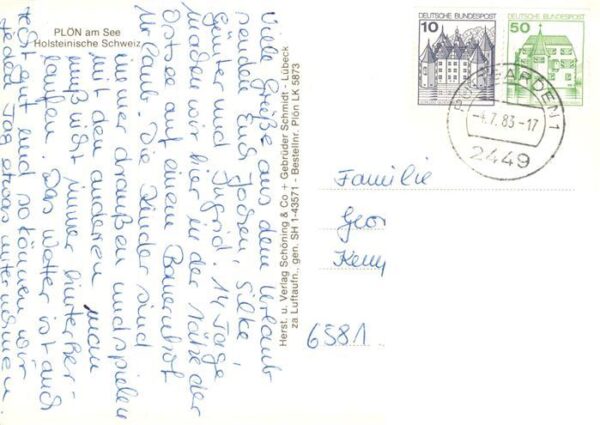 PLÖN am See
Holsteinische Schweiz
Viele Grüße aus dem Urlaub
senden Euch Jochen, Silke,
Günter und Ingrid. 14 Tage
machen wir hier in der Nähe der
Ostsee auf einem Bauernhof
Urlaub. Die Kinder sind
immer draußen und spielen
mit den anderen, man
muß nicht immer hinterher-
laufen. Das Wetter ist auch
sehr gut und so können wir
jeden Tag etwas unternehmen.
Herst. u. Verlag Schöning & Co + Gebrüder Schmidt - Lübeck
za Luftaufn., gen. SH 1-43571 - Bestellnr. Plön LK 5873
DEUTSCHE BUNDESPOST
10
DEUTSCHE BUNDESPOST
50
-4.7.83-17
2449
Familie
Geor
6581